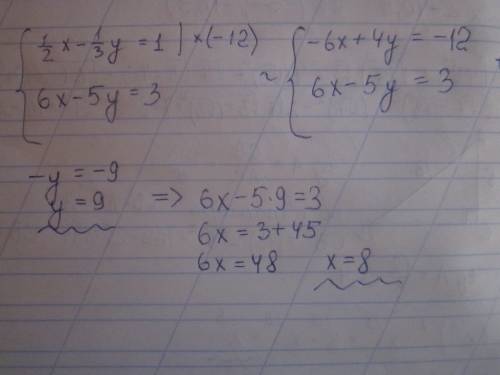 { 1/2 x - 1/3 y = 1 | ×(-12) ~ { -6x + 4y = -12
6x - 5y = 3 6x - 5y = 3
-y = -9
y = 9 => 6x - 5·9 = 3
6x = 3 + 45
6x = 48 x = 8